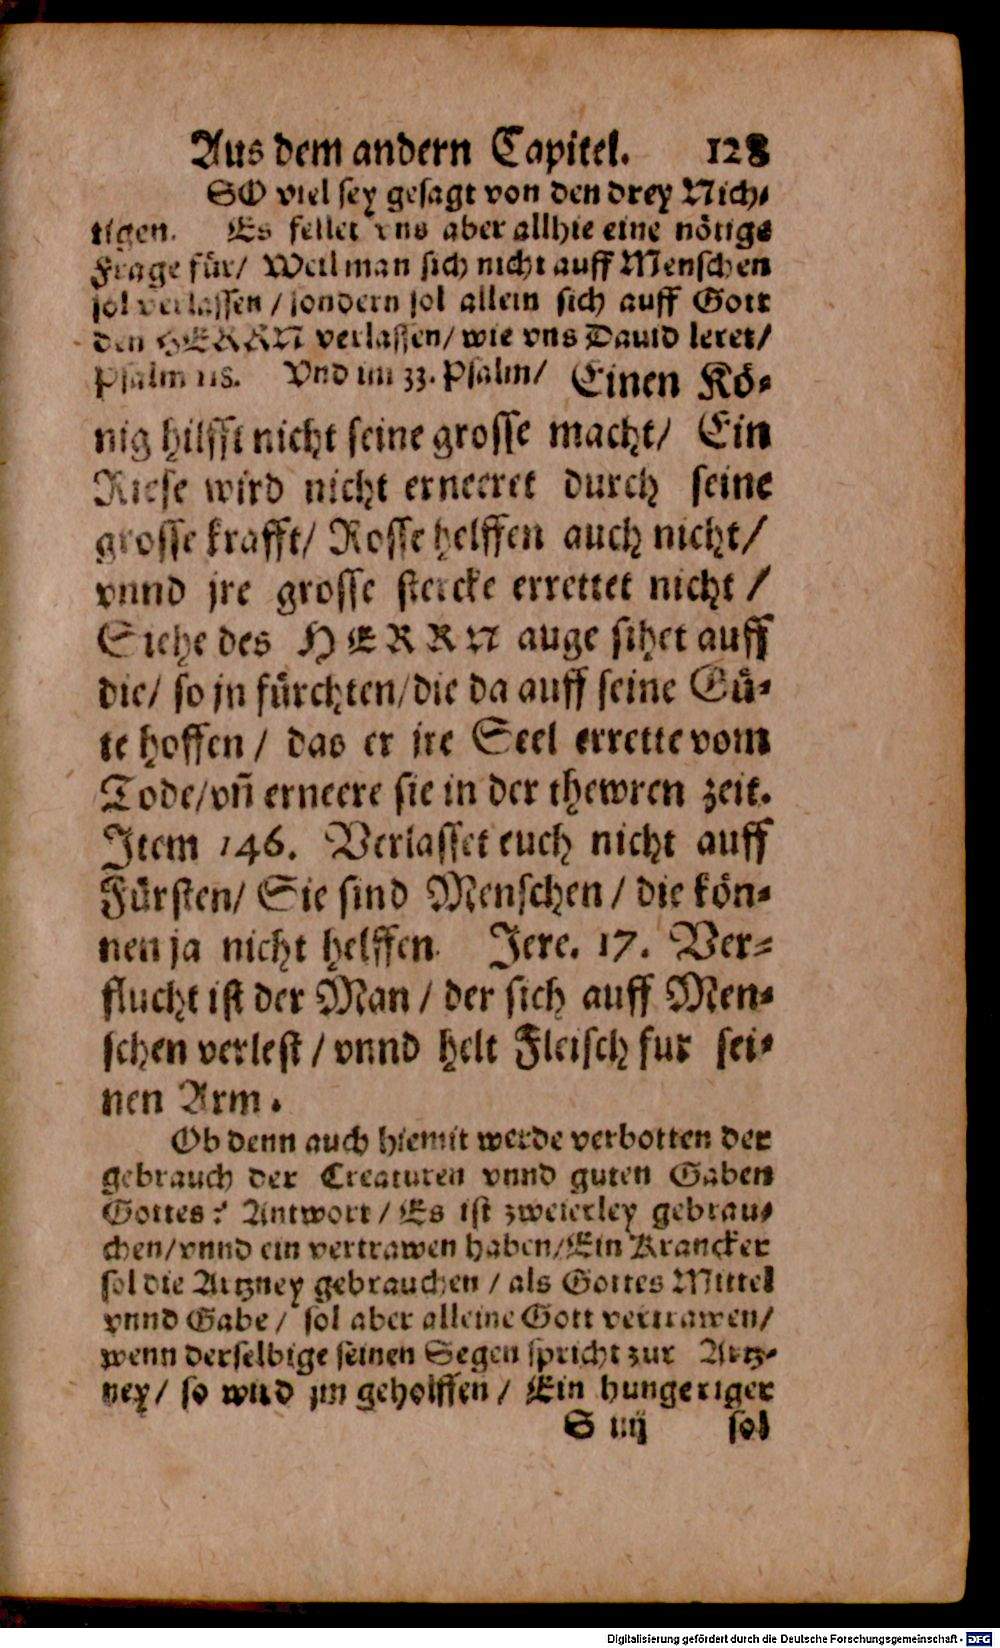 Aus dem andern Capitel. 128
SO viel sey gesagt von den drey Nich⸗
tigen. Es fellet vns aber allhie eine nötige
Frage für/ Weil man sich nicht auff Menschen
sol verlassen / sondern sol allein sich auff Gott
den HERRN verlassen/ wie vns Dauid leret/
Psalm 118. Vnd im 33. Psalm/ Einen Kö⸗
nig hilfft nicht seine grosse macht/ Ein
Riese wird nicht erneeret durch seine
grosse krafft/ Rosse helffen auch nicht/
vnnd jre grosse stercke errettet nicht /
Siehe des HERRN auge sihet auff
die/ so jn fürchten/die da auff seine Gü⸗
te hoffen / das er jre Seel errette vom
Tode/vñ erneere sie in der thewren zeit.
Item 146. Verlasset euch nicht auff
Fürsten/ Sie sind Menschen / die kön⸗
nen ja nicht helffen. Jere. 17. Ver⸗
flucht ist der Man / der sich auff Men⸗
schen verlest / vnnd helt Fleisch fur sei⸗
nen Arm.
Ob denn auch hiemit werde verbotten der
gebrauch der Creaturen vnnd guten Gaben
Gottes? Antwort / Es ist zweierley gebrau⸗
chen/vnnd ein vertrawen haben/Ein Krancker
sol die Artzney gebrauchen / als Gottes Mittel
vnnd Gabe / sol aber alleine Gott vertrawen/
wenn derselbige seinen Segen spricht zur Artz⸗
ney/ so wird jm geholffen / Ein hungeriger
S iiij sol
Digitalisierung gefördert durch die Deutsche Forschungsgemeinschaft - DFG